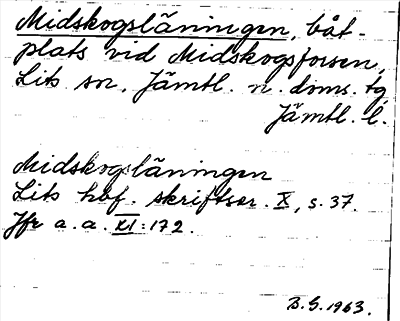 Midskogsläningen, båt-
plats vid Midskogsforsen,
Lits sn. Jämtl. n. doms. tg,
Jämtl. l.
Midskogsläningen
Lits hbf. skriftser. X, s. 37.
Jfr a. a. XI: 172.
B. G. 1963.